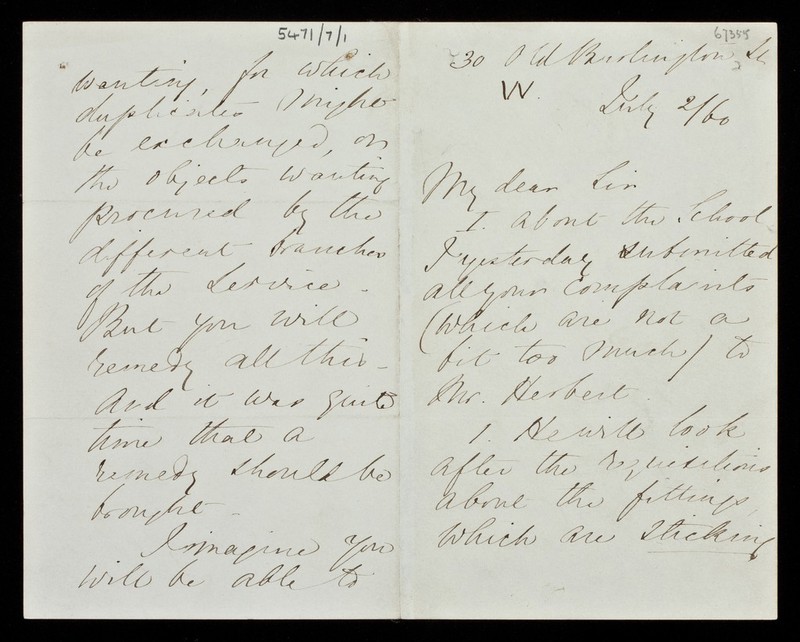 67355
2
30 Old Burlington St
W.
July 2/60
My dear Sir
I. about the School
I yesterday submitted
all your complaints
(which are not a
bit too much) to
Mr. Herbert.
1. He will look
after the requisitions
about the fittings,
which are sticking
5471/7/1
wanting, for which
duplicates might
be exchanged, or
the objects wanting
procured by the
different branches
of the Service -
But you will
remedy all this -
And it was quite
time that a
remedy should be
brought -
I imagine you
will be able to